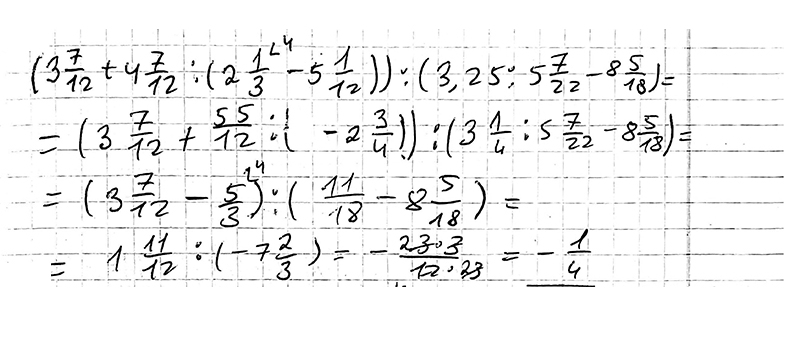 (3 7/12 + 4 7/12 : (2 1/3 ∟4 − 5 1/12)) : (3,25 : 5 7/22 − 8 5/18) =
= (3 7/12 + 55/12 : ( − 2 3/4)) : (3 1/4 : 5 7/22 − 8 5/18) =
= (3 7/12 − 5/3 ∟4) : ( 11/18 − 8 5/18 ) =
= 1 11/12 : (−7 2/3) = − 23·3/12·23 = − 1/4